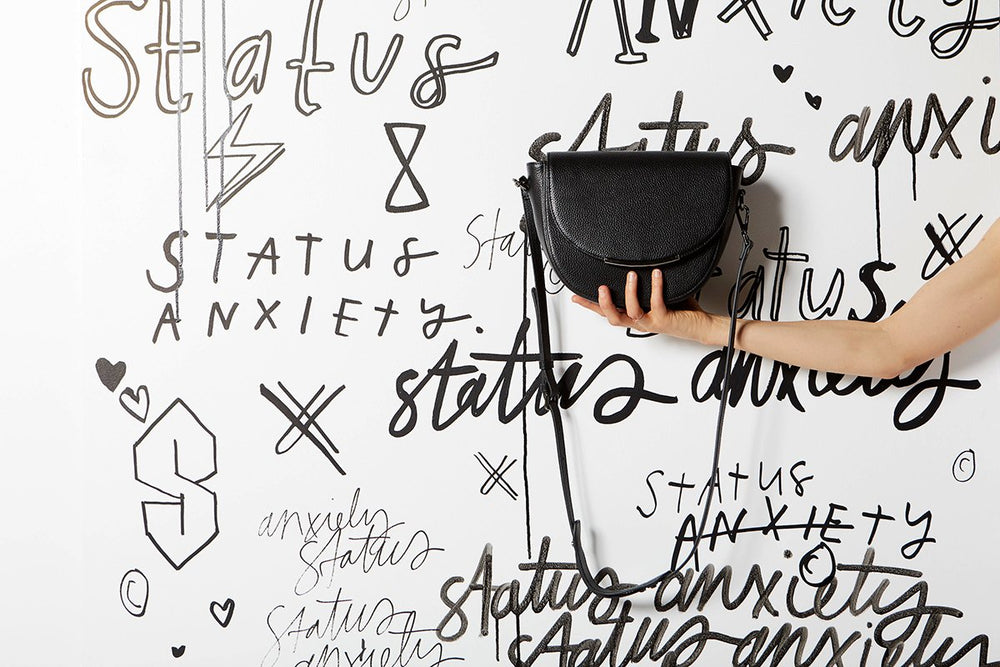 Status
Anxiety
Status
anxi
STATUS
ANXIETY.
Stat
status
status anxiety
STATUS
ANXIETY
anxiety
status
©
©
©
status anxiety
status
anxiety
status anxiety